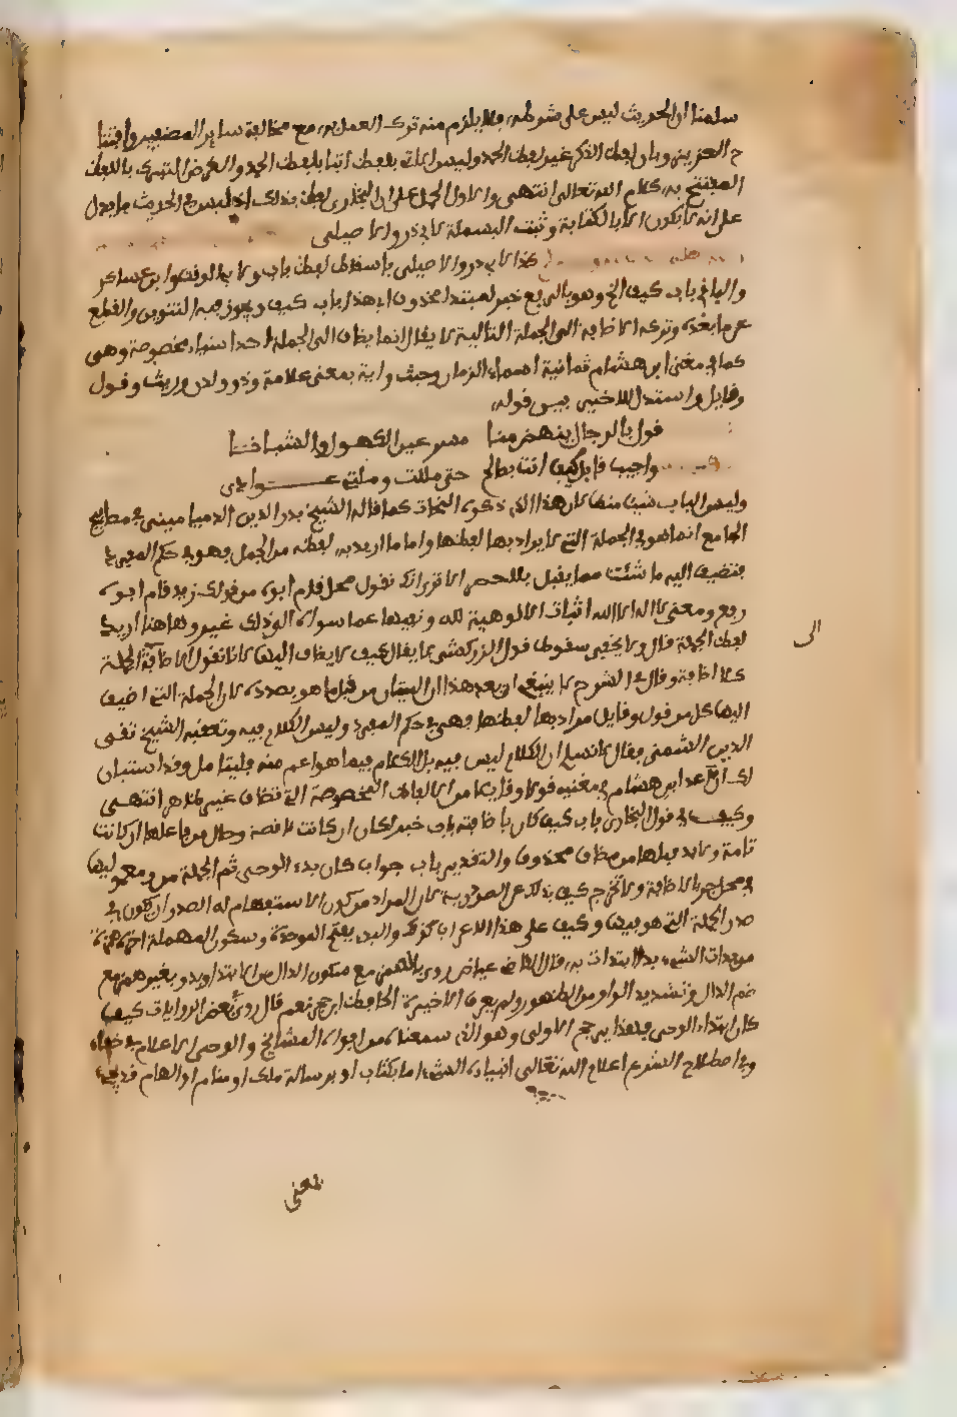 سلمنا ان الحديث ليس على شرطه فلا يلزم منه ترك العمل به مع مخالفة ساير المصنفين وافتتا
ح العزيز وبان لفظ الذكر غير لفظ الحمد وليس الاتي بلفظ اتيا بلفظ الحمد والغرض التبرك باللفظ
المفتتح به كلام الله تعالى انتهى والاولى الحمل على ان البخاري لفظ بذلك اذ ليس في الحديث ما يدل
على انه لا يكون الا بالكتابة وثبتت البسملة لابي ذر والاصيلي
كذا لابي ذر والاصيلي باسقاط لفظ باب ولابي الوقت وابن عساكر
والباقي باب كيف الخ وهو بالرفع خبر لمبتدا محذوف اي هذا باب كيف ويجوز فيه التنوين والقطع
عن ما بعده وتركه الاضافة الى الجملة التالية لا يقال انما يضاف الى الجملة احد اشياء مخصوصة وهي
كما في مغني ابن هشام ثمانية اسماء الزمان وحيث واية بمعنى علامة وذو ولدن وريث وقول
وقايل واستدل للاخير بيس قوله
قول يا للرجال ينهض منا مسرعين الكهول والشبانا
واجيب قايل كيف انت بصالح حتى مللت وملني عــــوادي
وليس الباب شيئا منها لان هذا الذي ذكره النحاة كما قاله الشيخ بدر الدين الدماميني في مصابيح
الجامع انما هو في الجملة التي لا يراد بها لفظها واما ما اريد به لفظه من الجمل فهو في حكم المفرد
فتضيف اليه ما شئت مما يقبل بلا حصر الا ترى انك تقول محل قام ابوه من قولك زيد قام ابوه
رفع ومعنى لا اله الا الله اثبات الالوهية لله ونفيها عما سواه الى ذلك غير وهاهنا اريد
الى
لفظ الجملة قال ولا يخفى سقوط قول الزركشي لا يقال كيف لا يضاف اليها لانا نقول الاضافة الى الجملة
كلا اضافة وقال في الشرح لا ينبغي ان يعد هذان البيتان من قبيل ما هو بصدده لان الجملة التي اضيف
اليها كل من قول وقايل مراد بها لفظها فهي في حكم المفرد وليس الكلام فيه وتعقبه الشيخ تقي
الدين الشمني فقال لا نسلم ان الكلام ليس فيه بل الكلام فيما هو اعم منه فليتامل وقد استبان
لك ان عد ابن هشام في مغنيه قولا وقايلا من الالفاظ المخصوصة التي تضاف غير ظاهر انتهى
وكيف في قول البخاري باب كيف كان باضافة باب خبر لكان ان كانت ناقصة وحال من فاعلها ان كانت
تامة ولا بد قبلها من مضاف محذوف والتقدير باب جواب كان بدء الوحي ثم الجملة من ومعموليها
في محل جر بالاضافة ولا تخرج كيف بذلك عن الصدرية لان المراد من كون الاستفهام له الصدر ان يكون في
صدر الجملة التي هو فيها وكيف على هذا الاعراب كذلك والبدء بفتح الموحدة وسكون المهملة اخره همزة
من بدات الشيء بدا ابتدات به قال القاضي عياض روي بالهمز مع سكون الدال من الابتدا وبدو بغير همز مع
ضم الدال وتشديد الواو من الظهور ولم يعرف الاخيرة الحافظ ابن حجر نعم قال روي في بعض الروايات كيف
كان ابتداء الوحي فهذا يرجح الاولى وهو الذي سمعناه من افواه المشايخ والوحي الاعلام في خفاء
وفي اصطلاح الشرع اعلام الله تعالى انبياءه الشيء اما بكتاب او برسالة ملك او منام او الهام قد يجيء
بمعنى